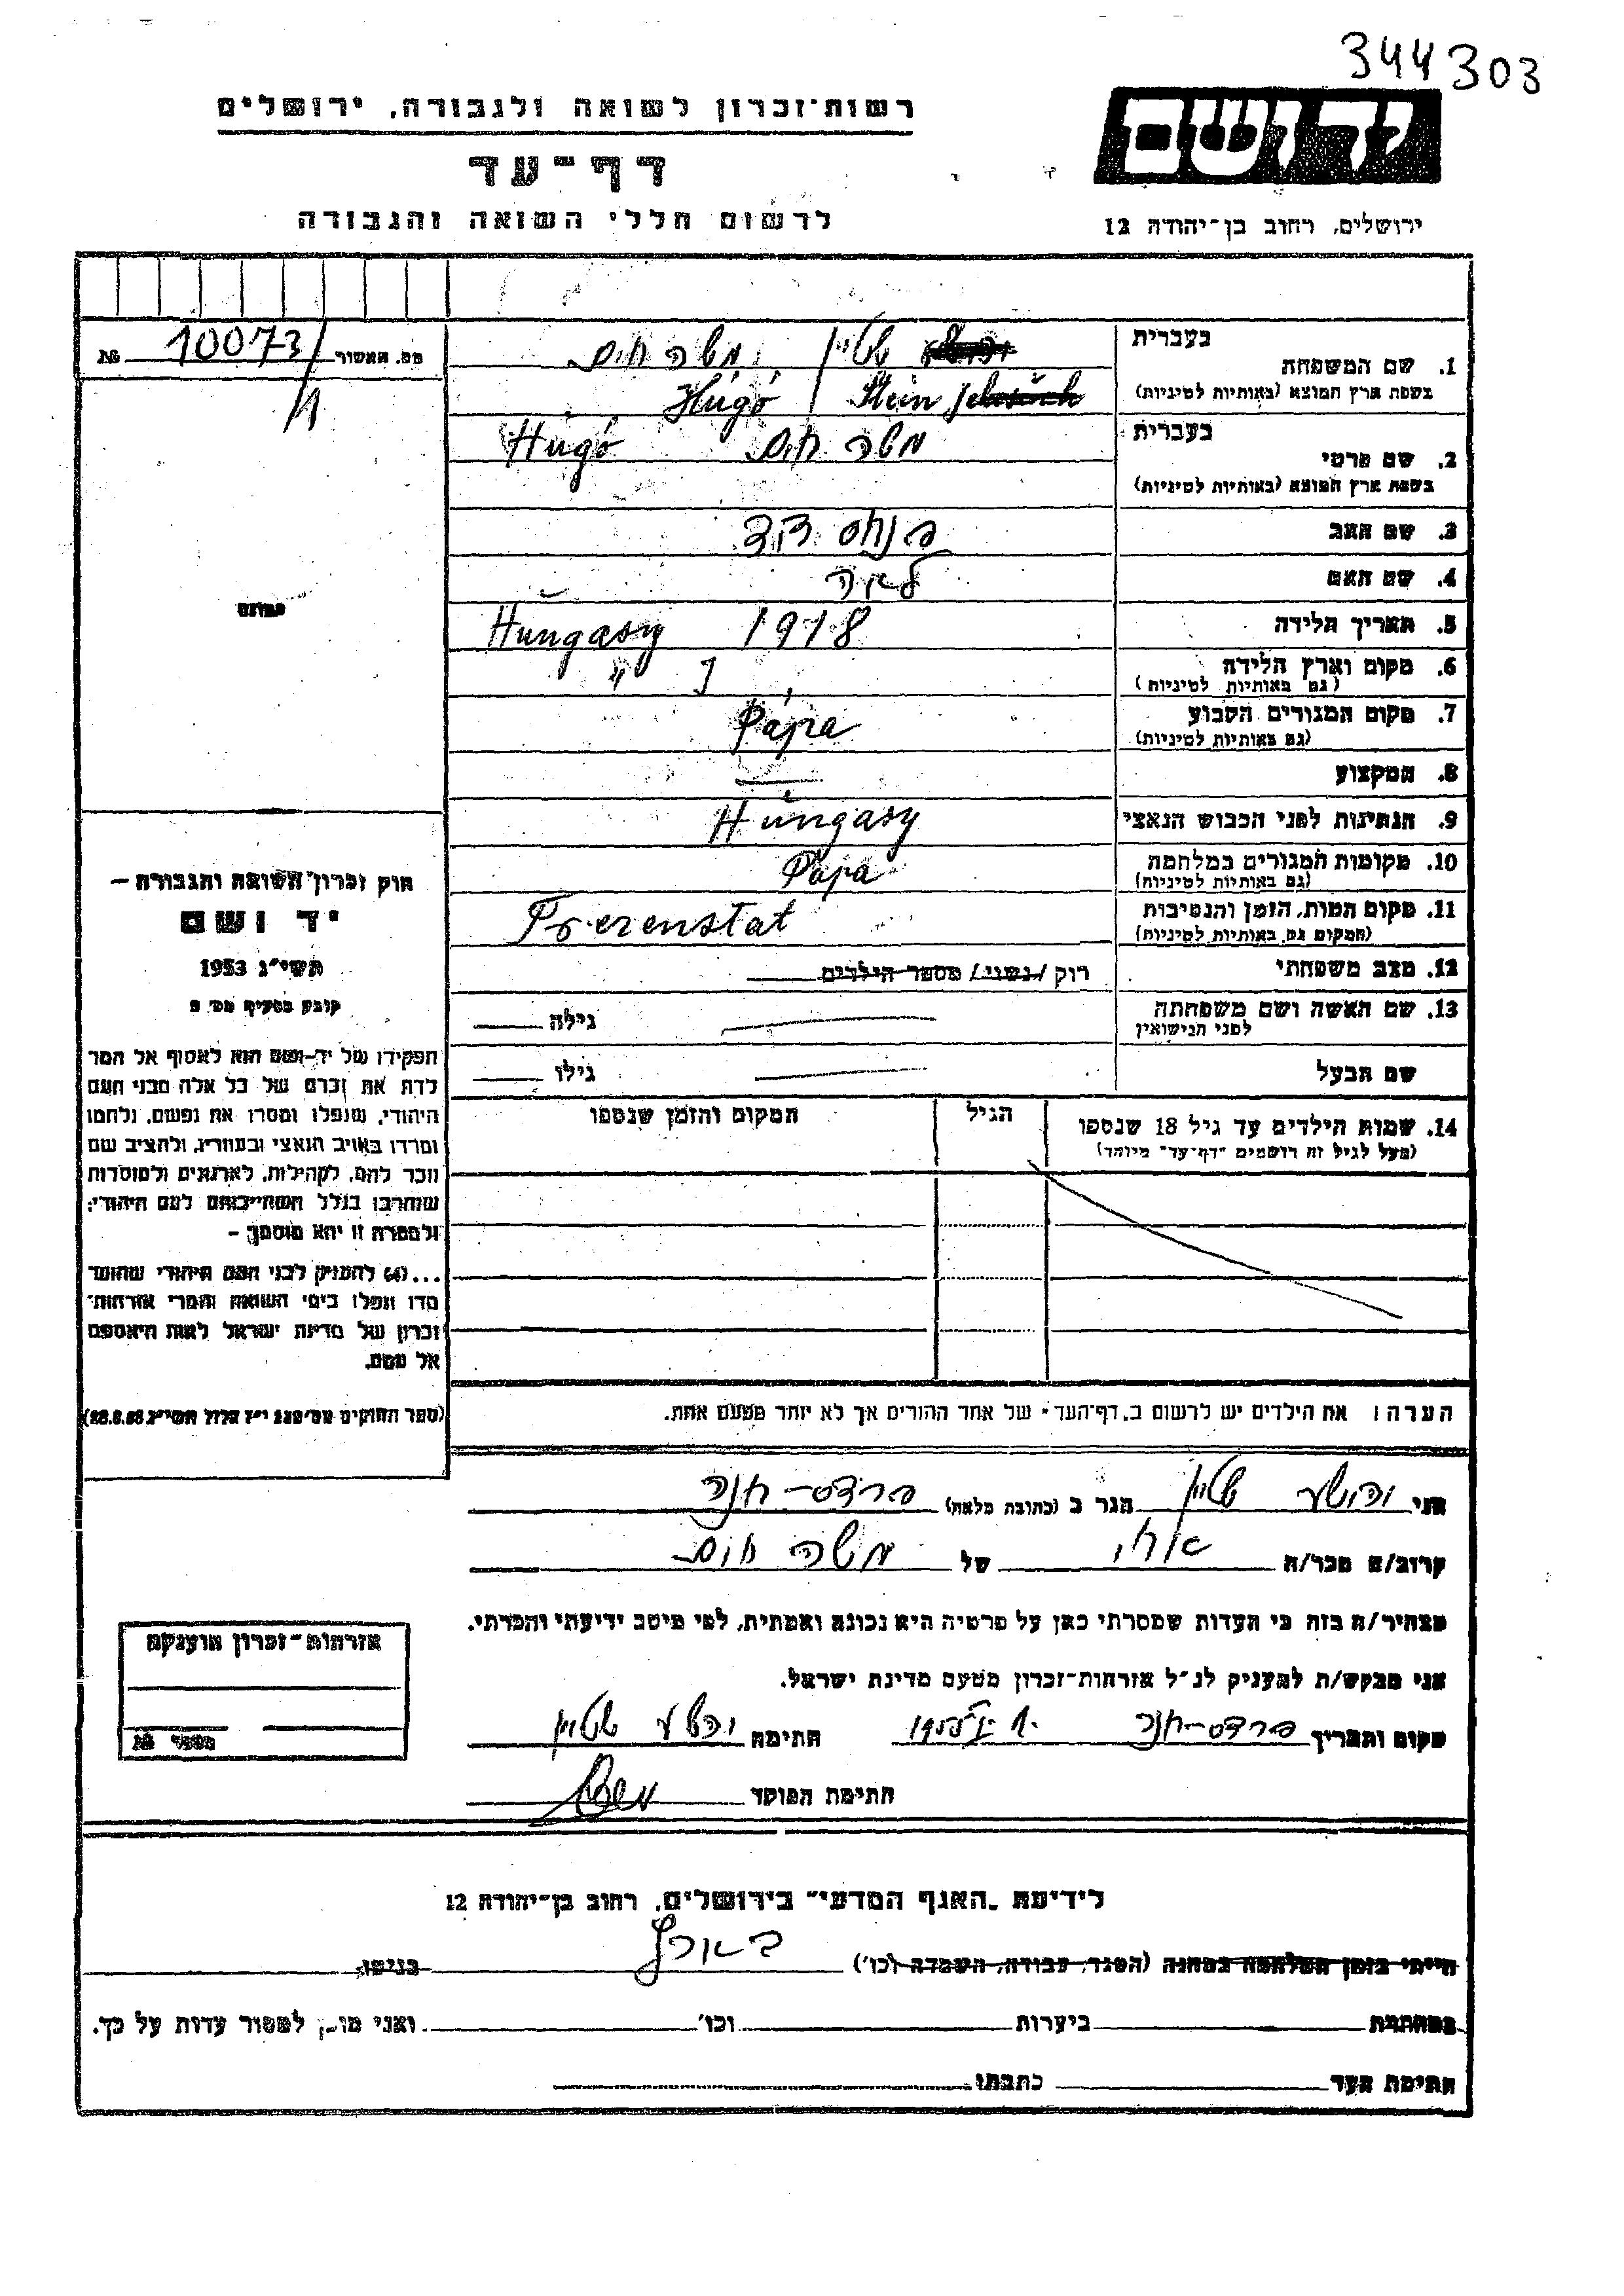 344303
יד ושם
רשות-זכרון לשואה ולגבורה, ירושלים
דף-עד
לרשום חללי השואה והגבורה
ירושלים, רחוב בן-יהודה 12
מס. האשור 10073/1 №
בעברית
1. שם המשפחה שטיין / משה חיים
בשפת ארץ המוצא (באותיות לטיניות) Stein / Húgó
בעברית
2. שם פרטי משה חיים Húgó
בשפת ארץ המוצא (באותיות לטיניות)
3. שם האב פנחס דוד
4. שם האם לאה
5. תאריך הלידה 1918 Hungasy
6. מקום וארץ הלידה
(גם באותיות לטיניות) "
7. מקום המגורים הקבוע Pápa
(גם באותיות לטיניות)
8. המקצוע —
9. הנתינות לפני הכבוש הנאצי Hungasy
10. מקומות המגורים במלחמה Pápa
(גם באותיות לטיניות)
11. מקום המות, הזמן והנסיבות
(המקום גם באותיות לטיניות)
12. מצב משפחתי רוק / נשוי / מספר הילדים
13. שם האשה ושם משפחתה
לפני הנישואין גילה
שם הבעל גילו
14. שמות הילדים עד גיל 18 שנספו הגיל המקום והזמן שנספו
(מעל לגיל זה רושמים "דף-עד" מיוחד)
הערה: את הילדים יש לרשום ב"דף-העד" של אחד ההורים אך לא יותר מפעם אחת.
תמונה
חוק זכרון השואה והגבורה —
יד ושם
תשי"ג 1953
קובע בסעיף מס'
תפקידו של יד-ושם הוא לאסוף אל המו
לדת את זכרם של כל אלה מבני העם
היהודי, שנפלו ומסרו את נפשם, נלחמו
ומרדו באויב הנאצי ובעוזריו, ולהציב שם
וזכר להם, לקהילות, לארגונים ולמוסדות
שנחרבו בגלל השתייכותם לעם היהודי;
ולמטרה זו יהא מוסמך —
...(4) להעניק לבני העם היהודי שהוש
מדו ונפלו בימי השואה והמרי אזרחות-
זכרון של מדינת ישראל לאות היאספם
אל עמם.
אני יהושע שטיין הגר ב (כתובת מלאה) פרדס-חנה
קרוב/ם מכר/ה אחי של משה חיים
מצהיר/ה בזה כי העדות שמסרתי כאן על פרטיה היא נכונה ואמתית, לפי מיטב ידיעתי והכרתי.
אני מבקש/ת להעניק לנ"ל אזרחות-זכרון מטעם מדינת ישראל.
מקום ותאריך פרדס-חנה חתימה יהושע שטיין
חתימת הפוקד
אזרחות-זכרון הוענקה
מספר №
לידיעת "האגף המדעי" בירושלים, רחוב בן-יהודה 12
הייתי בזמן המלחמה במחנה (הסגר, עבודה, השמדה וכו') בארץ בגיטו
במחתרת ביערות וכו' ואני מוכן למסור עדות על כך.
חתימת העד כתבתו